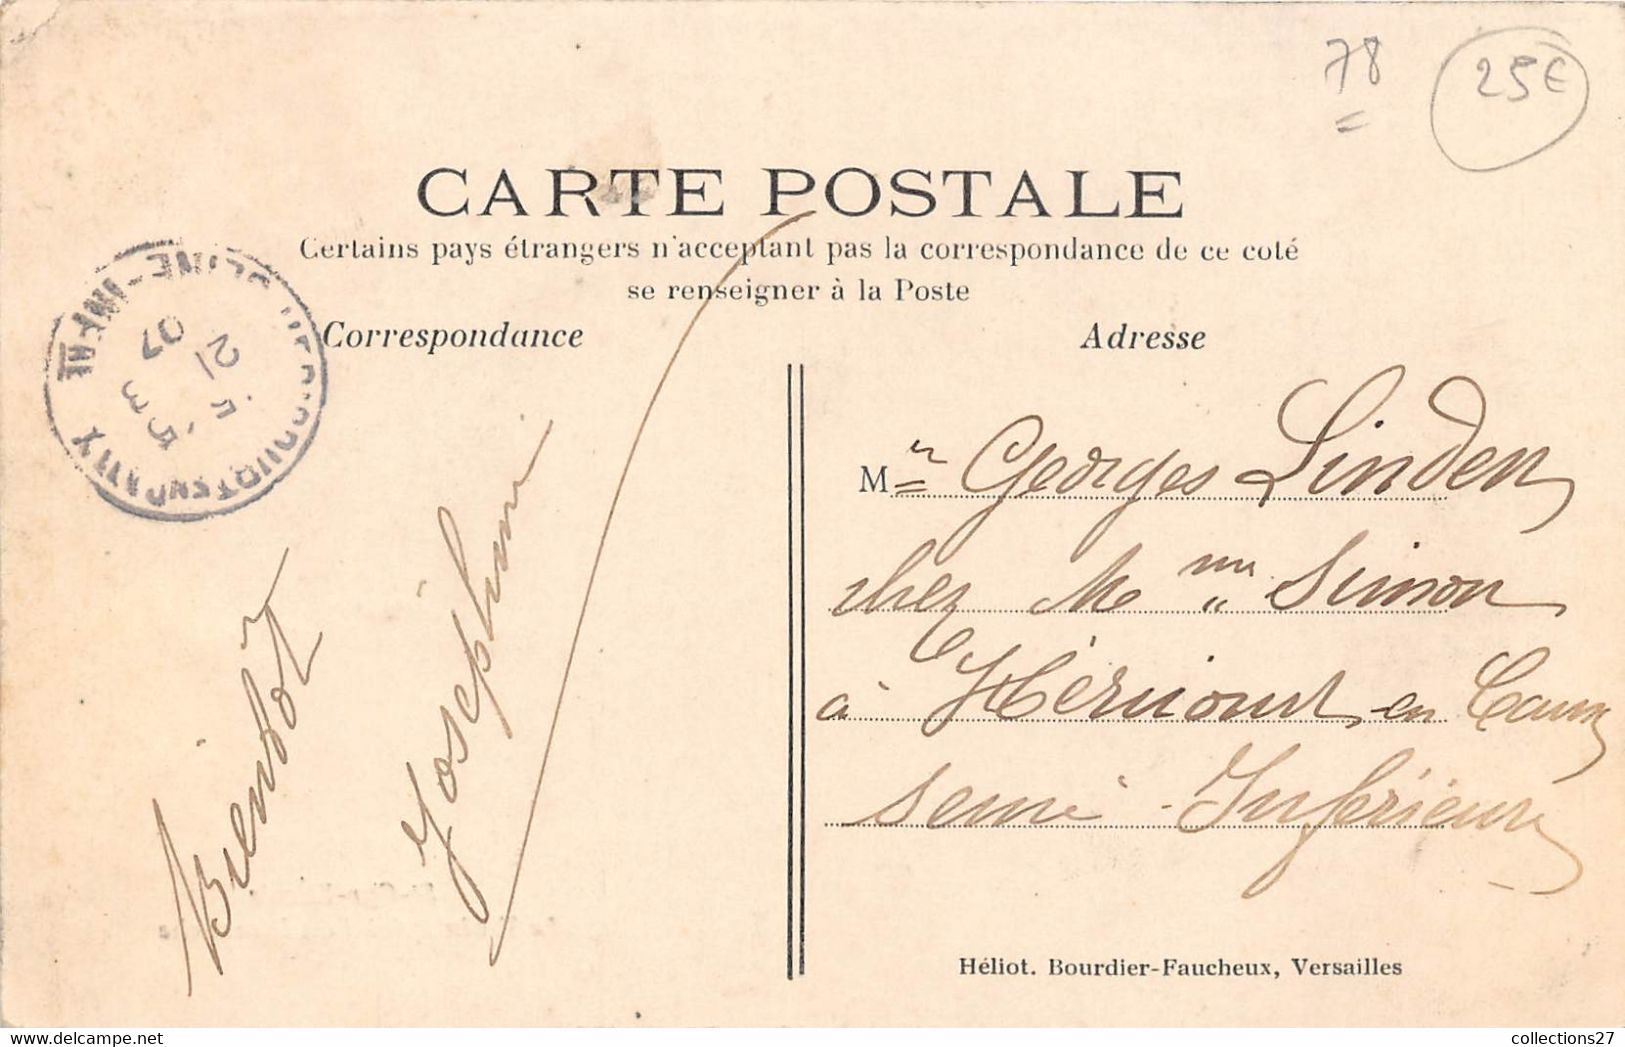 78
25€
CARTE POSTALE
Certains pays étrangers n'acceptant pas la correspondance de ce coté
se renseigner à la Poste
Correspondance
Adresse
Mr Georges Linden
chez Mme Simon
à Héricourt en Caux
Seine-Inférieure
Bientôt
Joséphine
SEINE-INFRE
21
5
07
Héliot. Bourdier-Faucheux, Versailles
collections27